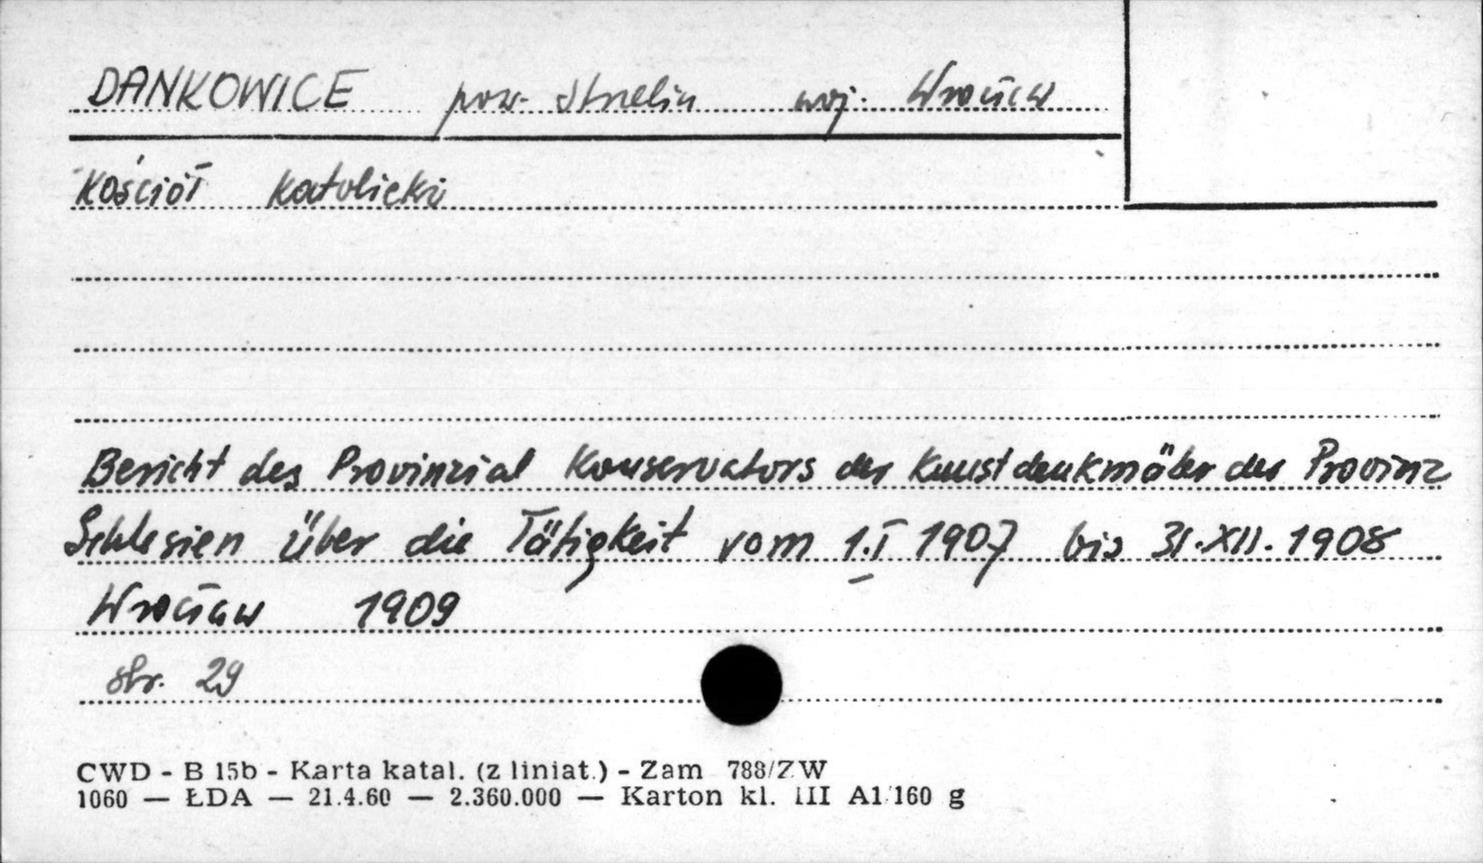 DANKOWICE pow. Strzelin woj. Wrocław
Kościół katolicki
Bericht des Provinzial Konservators der Kunstdenkmäler der Provinz
Schlesien über die Tätigkeit vom 1.I 1907 bis 31.XII.1908
Wrocław 1909
str. 29
CWD - B 15b - Karta katal. (z liniat.) - Zam 788/ZW
1060 — ŁDA — 21.4.60 — 2.360.000 — Karton kl. III A1/160 g